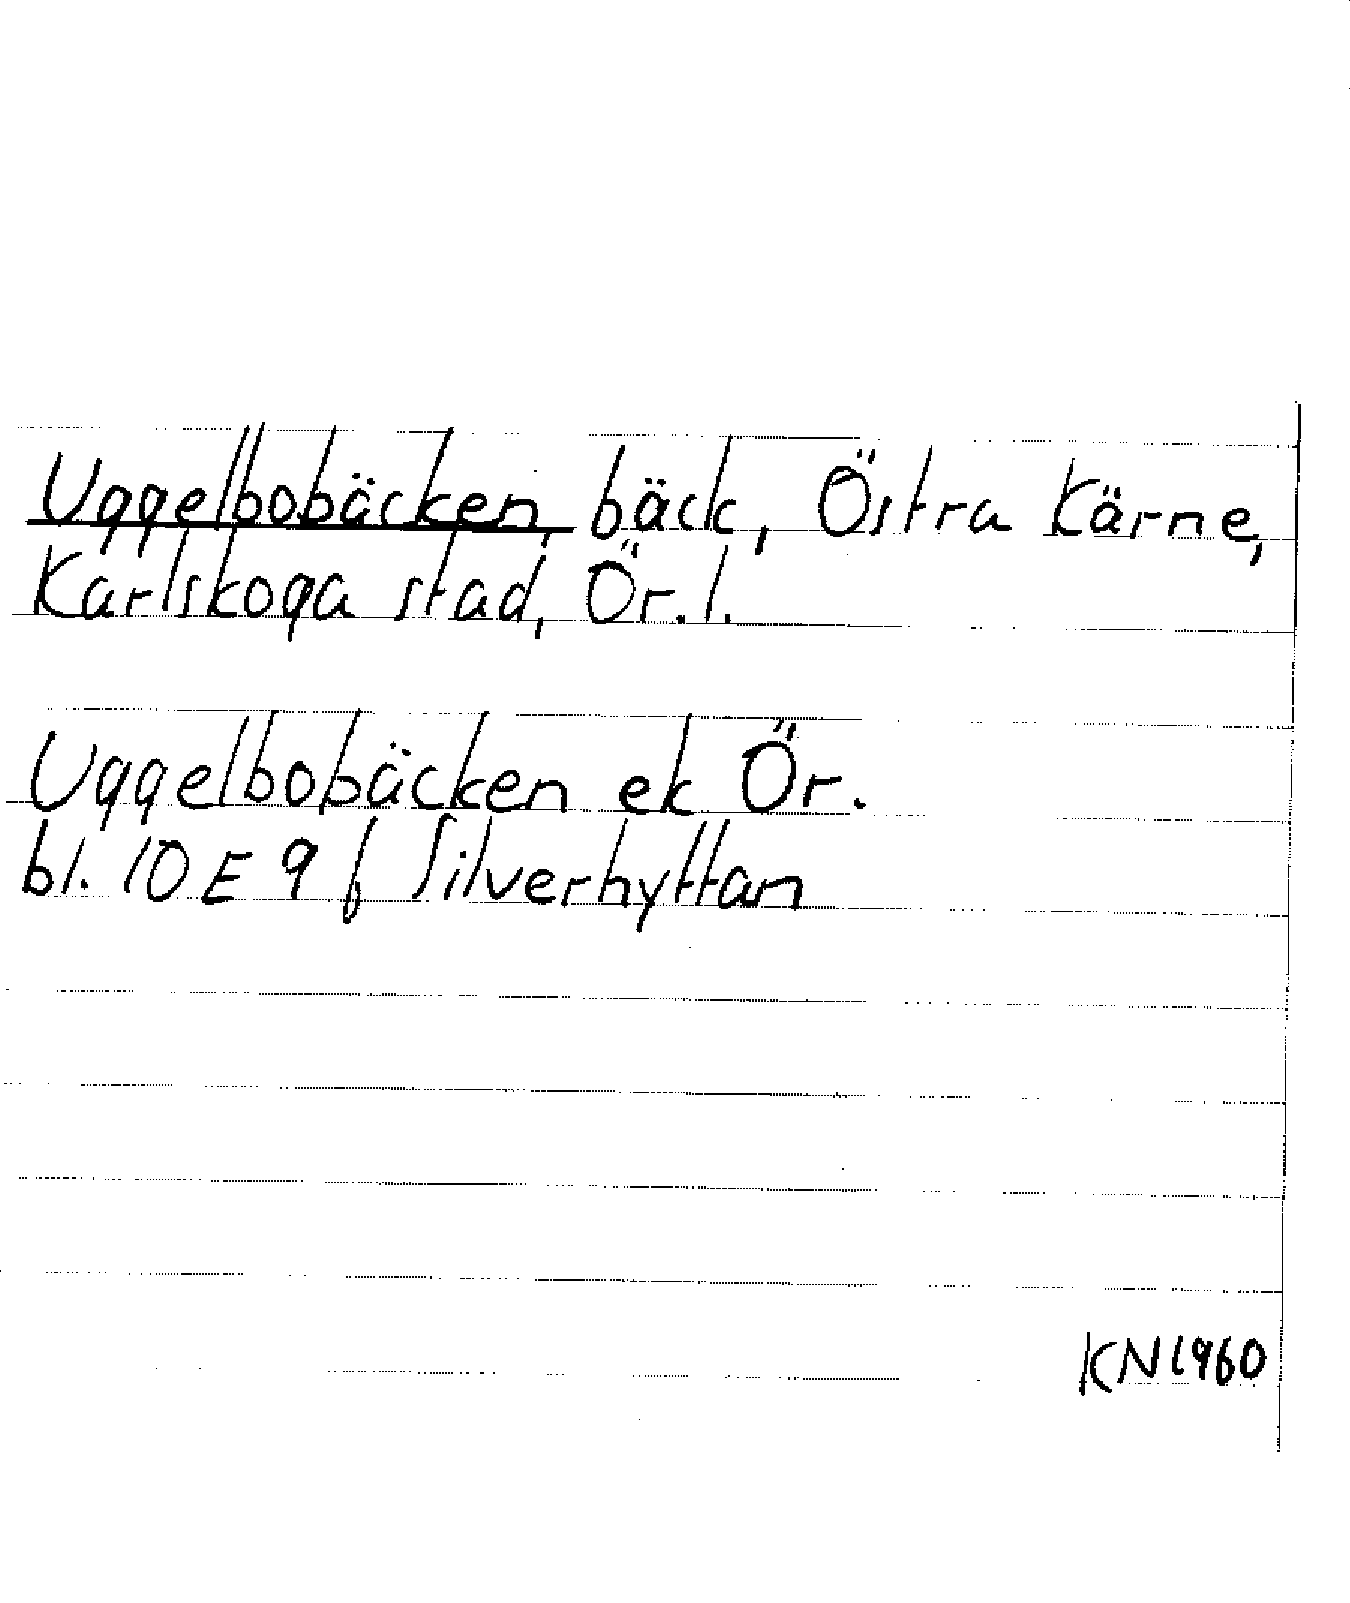 Uggelbobäcken, bäck, Östra Kärne,
Karlskoga stad, Ör. l.
Uggelbobäcken ek Ör.
bl. 10 E 9 f Silverhyttan
KN 1960